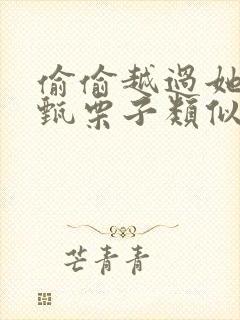 偷偷越過她
甄栗子類似
芒青青